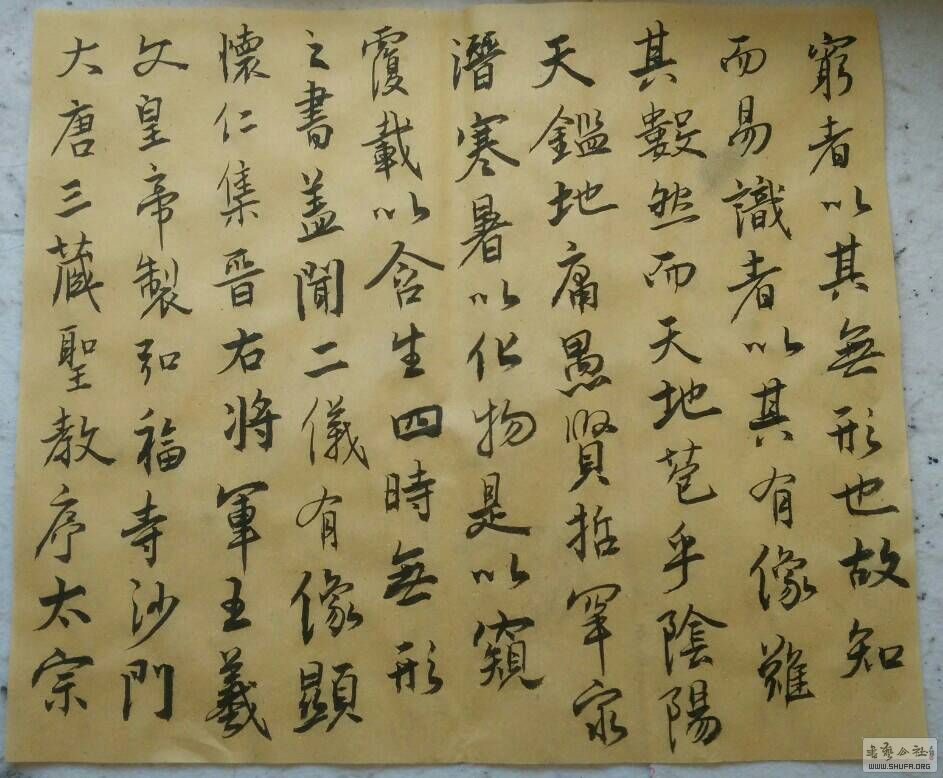 大唐三藏聖教序太宗
文皇帝製弘福寺沙門
懷仁集晉右將軍王羲
之書蓋聞二儀有像顯
覆載以含生四時無形
潛寒暑以化物是以窺
天鑑地庸愚賢哲罕
其數然而天地苞乎陰陽
而易識者以其有像難
窮者以其無形也故知
書藝公社
WWW.SHUFA.ORG